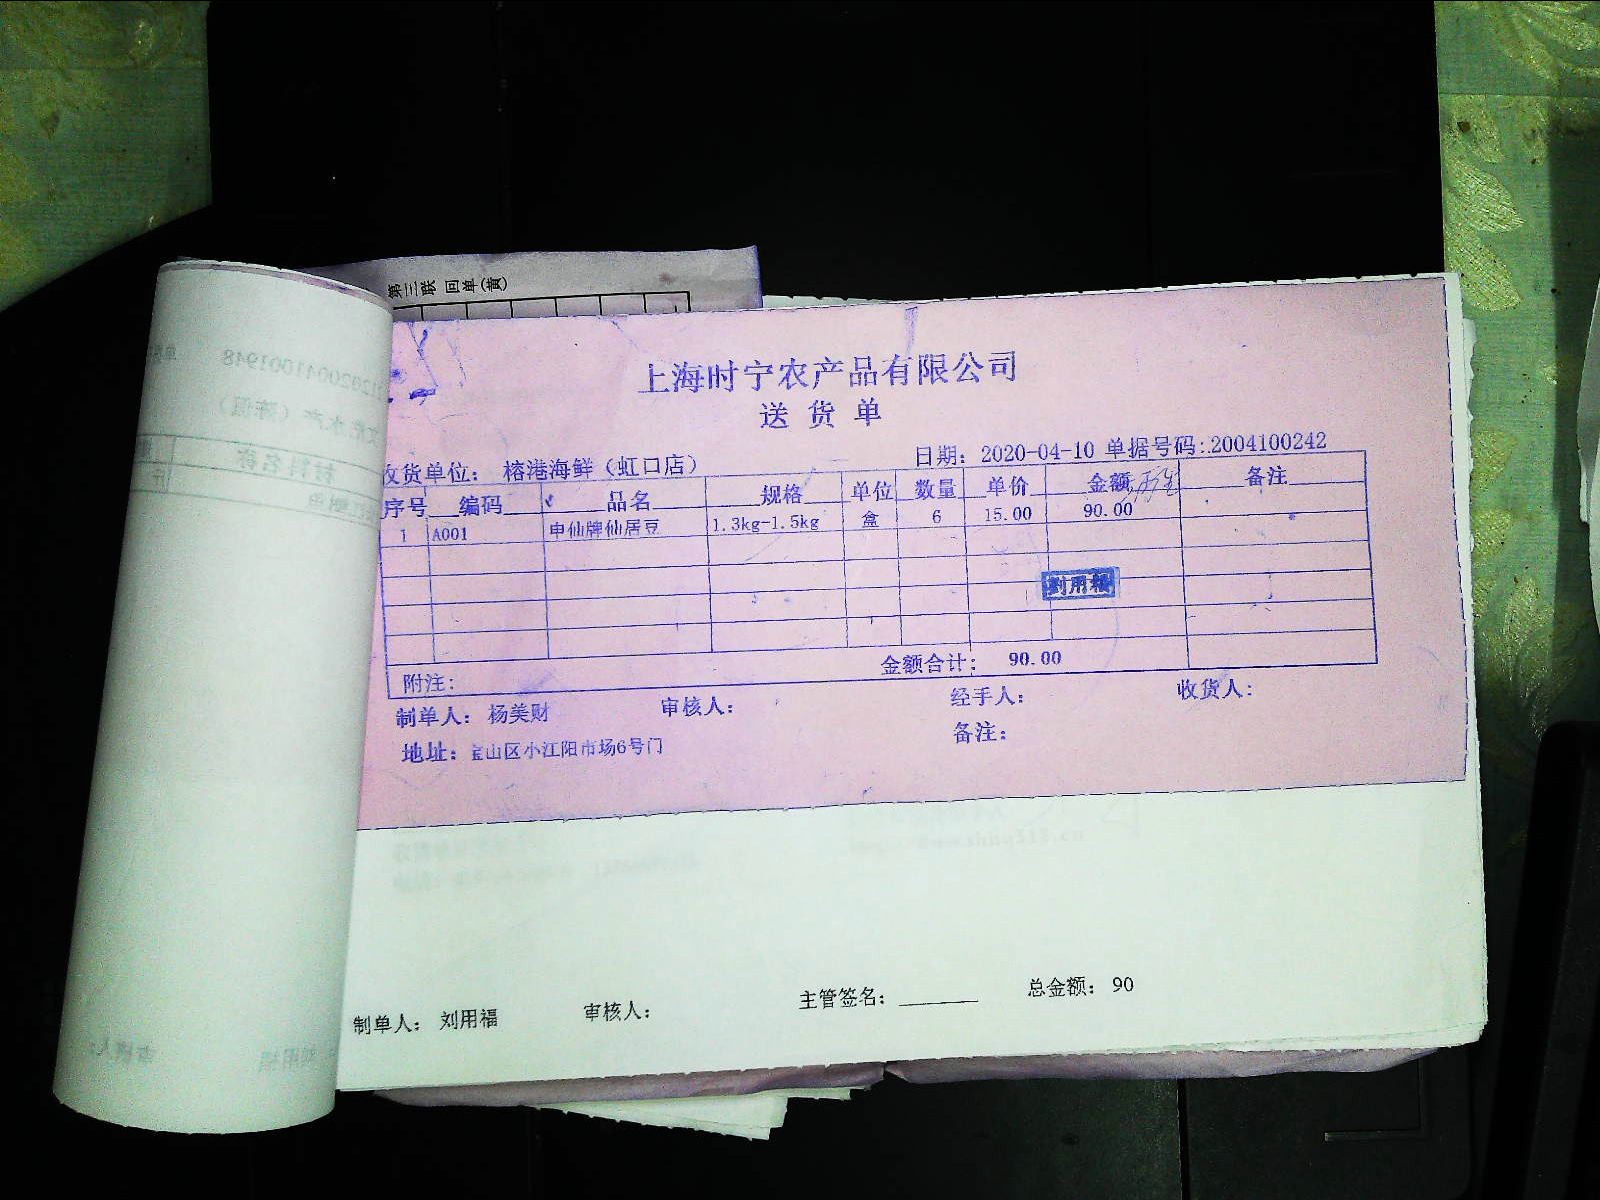 第三联 回单(黄)
上海时宁农产品有限公司
送货单
日期: 2020-04-10 单据号码:2004100242
收货单位: 榕港海鲜(虹口店)
序号 编码 品名 规格 单位 数量 单价 金额 备注
1 A001 申仙牌仙居豆 1.3kg-1.5kg 盒 6 15.00 90.00
刘用福
金额合计: 90.00
附注:
制单人: 杨美财 审核人: 经手人: 收货人:
地址: 宝山区小江阳市场6号门 备注:
制单人: 刘用福 审核人: 主管签名: 总金额: 90